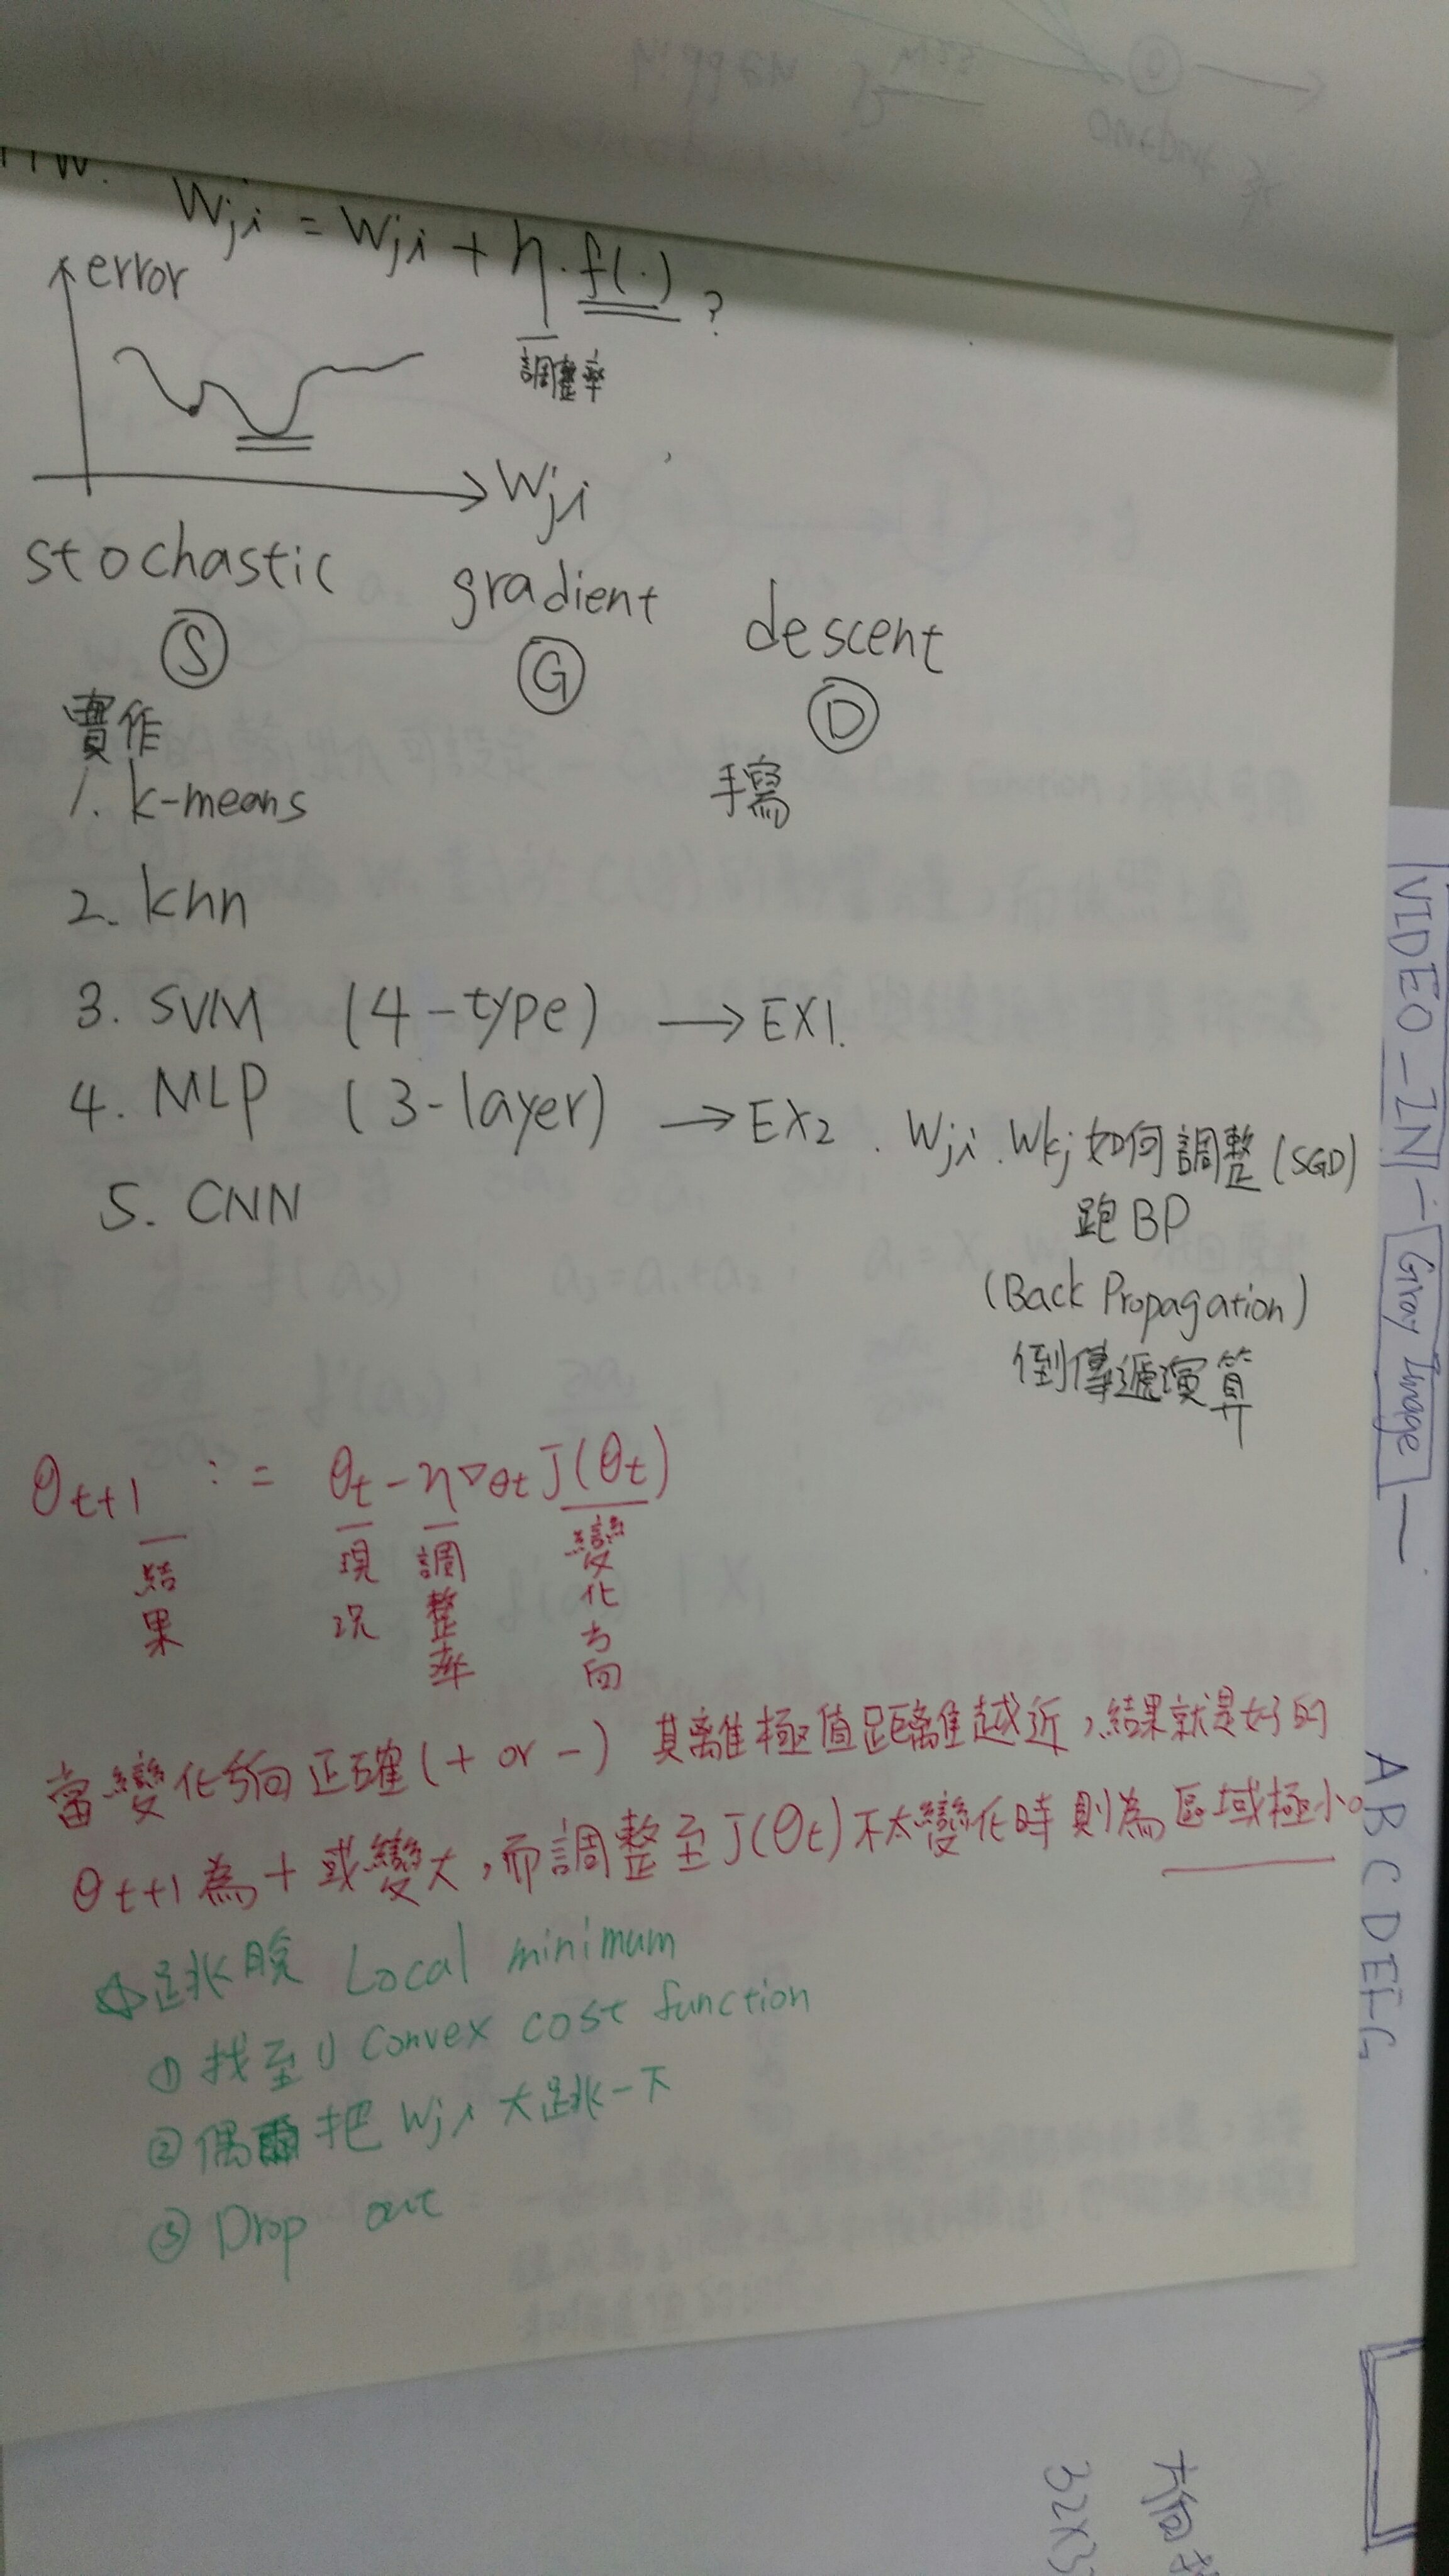 Wji = Wji + η · f(·) ?
調整率
error
Wji
stochastic gradient descent
S G D
實作
手寫
1. k-means
2. knn
3. SVM (4-type) → EX1.
4. MLP (3-layer) → EX2 . Wji . Wkj 如何調整 (SGD)
跑 BP
5. CNN
(Back Propagation)
倒傳遞演算
θt+1 := θt - η∇θt J(θt)
結果
現況
調整率
變化方向
當變化方向正確(+ or -) 其離極值距離越近,結果就是好的
θt+1 為 + 或變大,而調整至J(θt)不太變化時則為區域極小。
☆跳脫 Local minimum
① 找到 convex cost function
② 偶爾 把 Wji 大跳一下
③ Drop out
VIDEO_IN
Gray Image
A B C D E F G
output